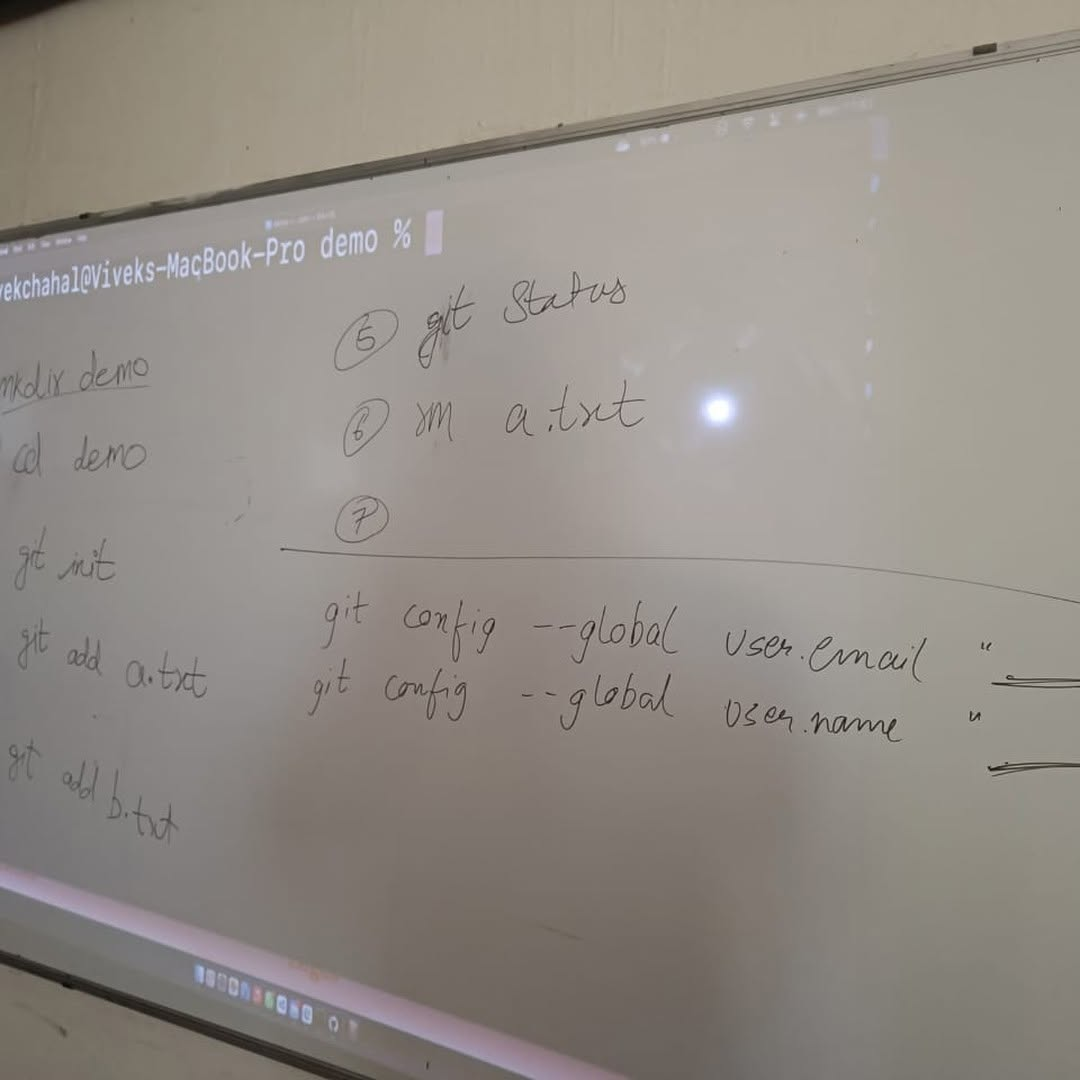 vekchahal@Viveks-MacBook-Pro demo %
mkdir demo
cd demo
git init
git add a.txt
git add b.txt
5 git status
6 rm a.txt
7
git config --global user.email "
git config --global user.name "